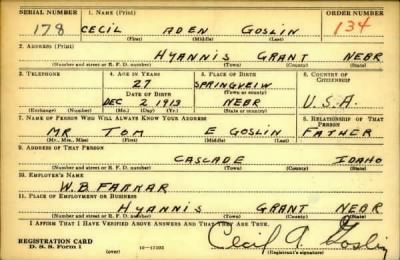 SERIAL NUMBER 1. NAME (Print) ORDER NUMBER
178 CECIL ADEN GOSLIN 134
(First) (Middle) (Last)
2. ADDRESS (Print)
HYANNIS GRANT NEBR
(Number and street or R. F. D. number) (Town) (County) (State)
3. TELEPHONE 4. AGE IN YEARS 5. PLACE OF BIRTH 6. COUNTRY OF CITIZENSHIP
27 SPRINGVEIW
DATE OF BIRTH (Town or county)
DEC 2 1913 NEBR U.S.A.
(Exchange) (Number) (Mo.) (Day) (Yr.) (State or country)
7. NAME OF PERSON WHO WILL ALWAYS KNOW YOUR ADDRESS 8. RELATIONSHIP OF THAT PERSON
MR TOM E GOSLIN FATHER
(Mr., Mrs., Miss) (First) (Middle) (Last)
9. ADDRESS OF THAT PERSON
CASCADE IDAHO
(Number and street or R. F. D. number) (Town) (County) (State)
10. EMPLOYER'S NAME
W.B FARNAR
11. PLACE OF EMPLOYMENT OR BUSINESS
HYANNIS GRANT NEBR
(Number and street or R. F. D. number) (Town) (County) (State)
I AFFIRM THAT I HAVE VERIFIED ABOVE ANSWERS AND THAT THEY ARE TRUE.
REGISTRATION CARD
D. S. S. Form 1 Cecil A. Goslin
(Registrant's signature)